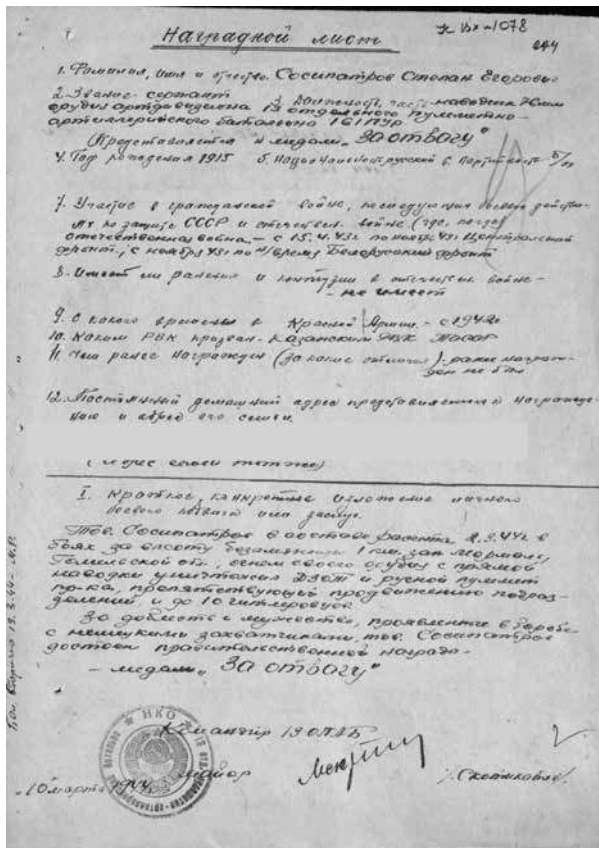 К Вх №1078
Наградной лист
1. Фамилия, имя и отчество Сосипатров Степан Егорович
2. Звание - сержант 3. Должность, часть - наводчик 76мм
орудия артдивизиона 13 отдельного пулеметно-
артиллерийского батальона 161 ПУР
(Представляется к медали "За отвагу"
4. Год рождения 1915 5. Национальность русский 6. Партийность б/п
7. Участие в гражданской войне, последующих боевых действи-
ях по защите СССР и отечествен. войне (где, когда)
отечественная война - с 15.4.43г. по ноябрь 43г. Центральный
фронт, с ноября 43г. по н/время Белорусский фронт
8. Имеет ли ранения и контузии в отечествен. войне -
- не имеет
9. С какого времени в Красной Армии - с 1942г.
10. Каким РВК призван - Казанским РВК ТАССР
11. Чем ранее награжден (за какие отличия) - ранее награж-
ден не был.
12. Постоянный домашний адрес представляемого к награжде-
нию и адрес его семьи.
(Адрес семьи тот же)
I. Краткое, конкретное изложение личного
боевого подвига или заслуг.
Тов. Сосипатров в составе расчета 2.3.44г. в
боях за высоту безымянную 1 км. зап.
Гомельской обл., огнем своего орудия с прямой
наводки уничтожил ДЗОТ и ручной пулемет
пр-ка, препятствующий продвижению подраз-
делений, и до 10 гитлеровцев.
За доблесть и мужество, проявленные в борьбе
с немецкими захватчиками, тов. Сосипатров
достоин правительственной награды -
- медали "За отвагу"
НКО
Командир 13 ОПАБ
майор
10 марта 1944г.